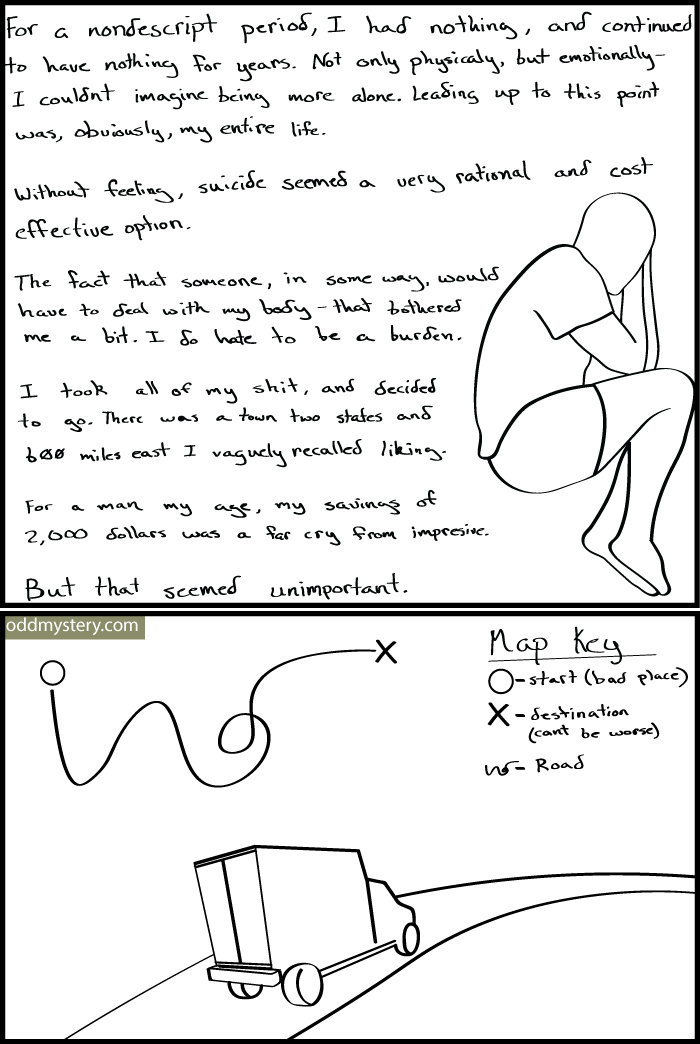 For a nondescript period, I had nothing, and continued
to have nothing for years. Not only physicaly, but emotionally-
I couldnt imagine being more alone. Leading up to this point
was, obviously, my entire life.
Without feeling, suicide seemed a very rational and cost
effective option.
The fact that someone, in some way, would
have to deal with my body - that bothered
me a bit. I do hate to be a burden.
I took all of my shit, and decided
to go. There was a town two states and
600 miles east I vaguely recalled liking.
For a man my age, my savings of
2,000 dollars was a far cry from impresive.
But that seemed unimportant.
oddmystery.com
X
Map Key
O - start (bad place)
X - destination
(cant be worse)
- Road